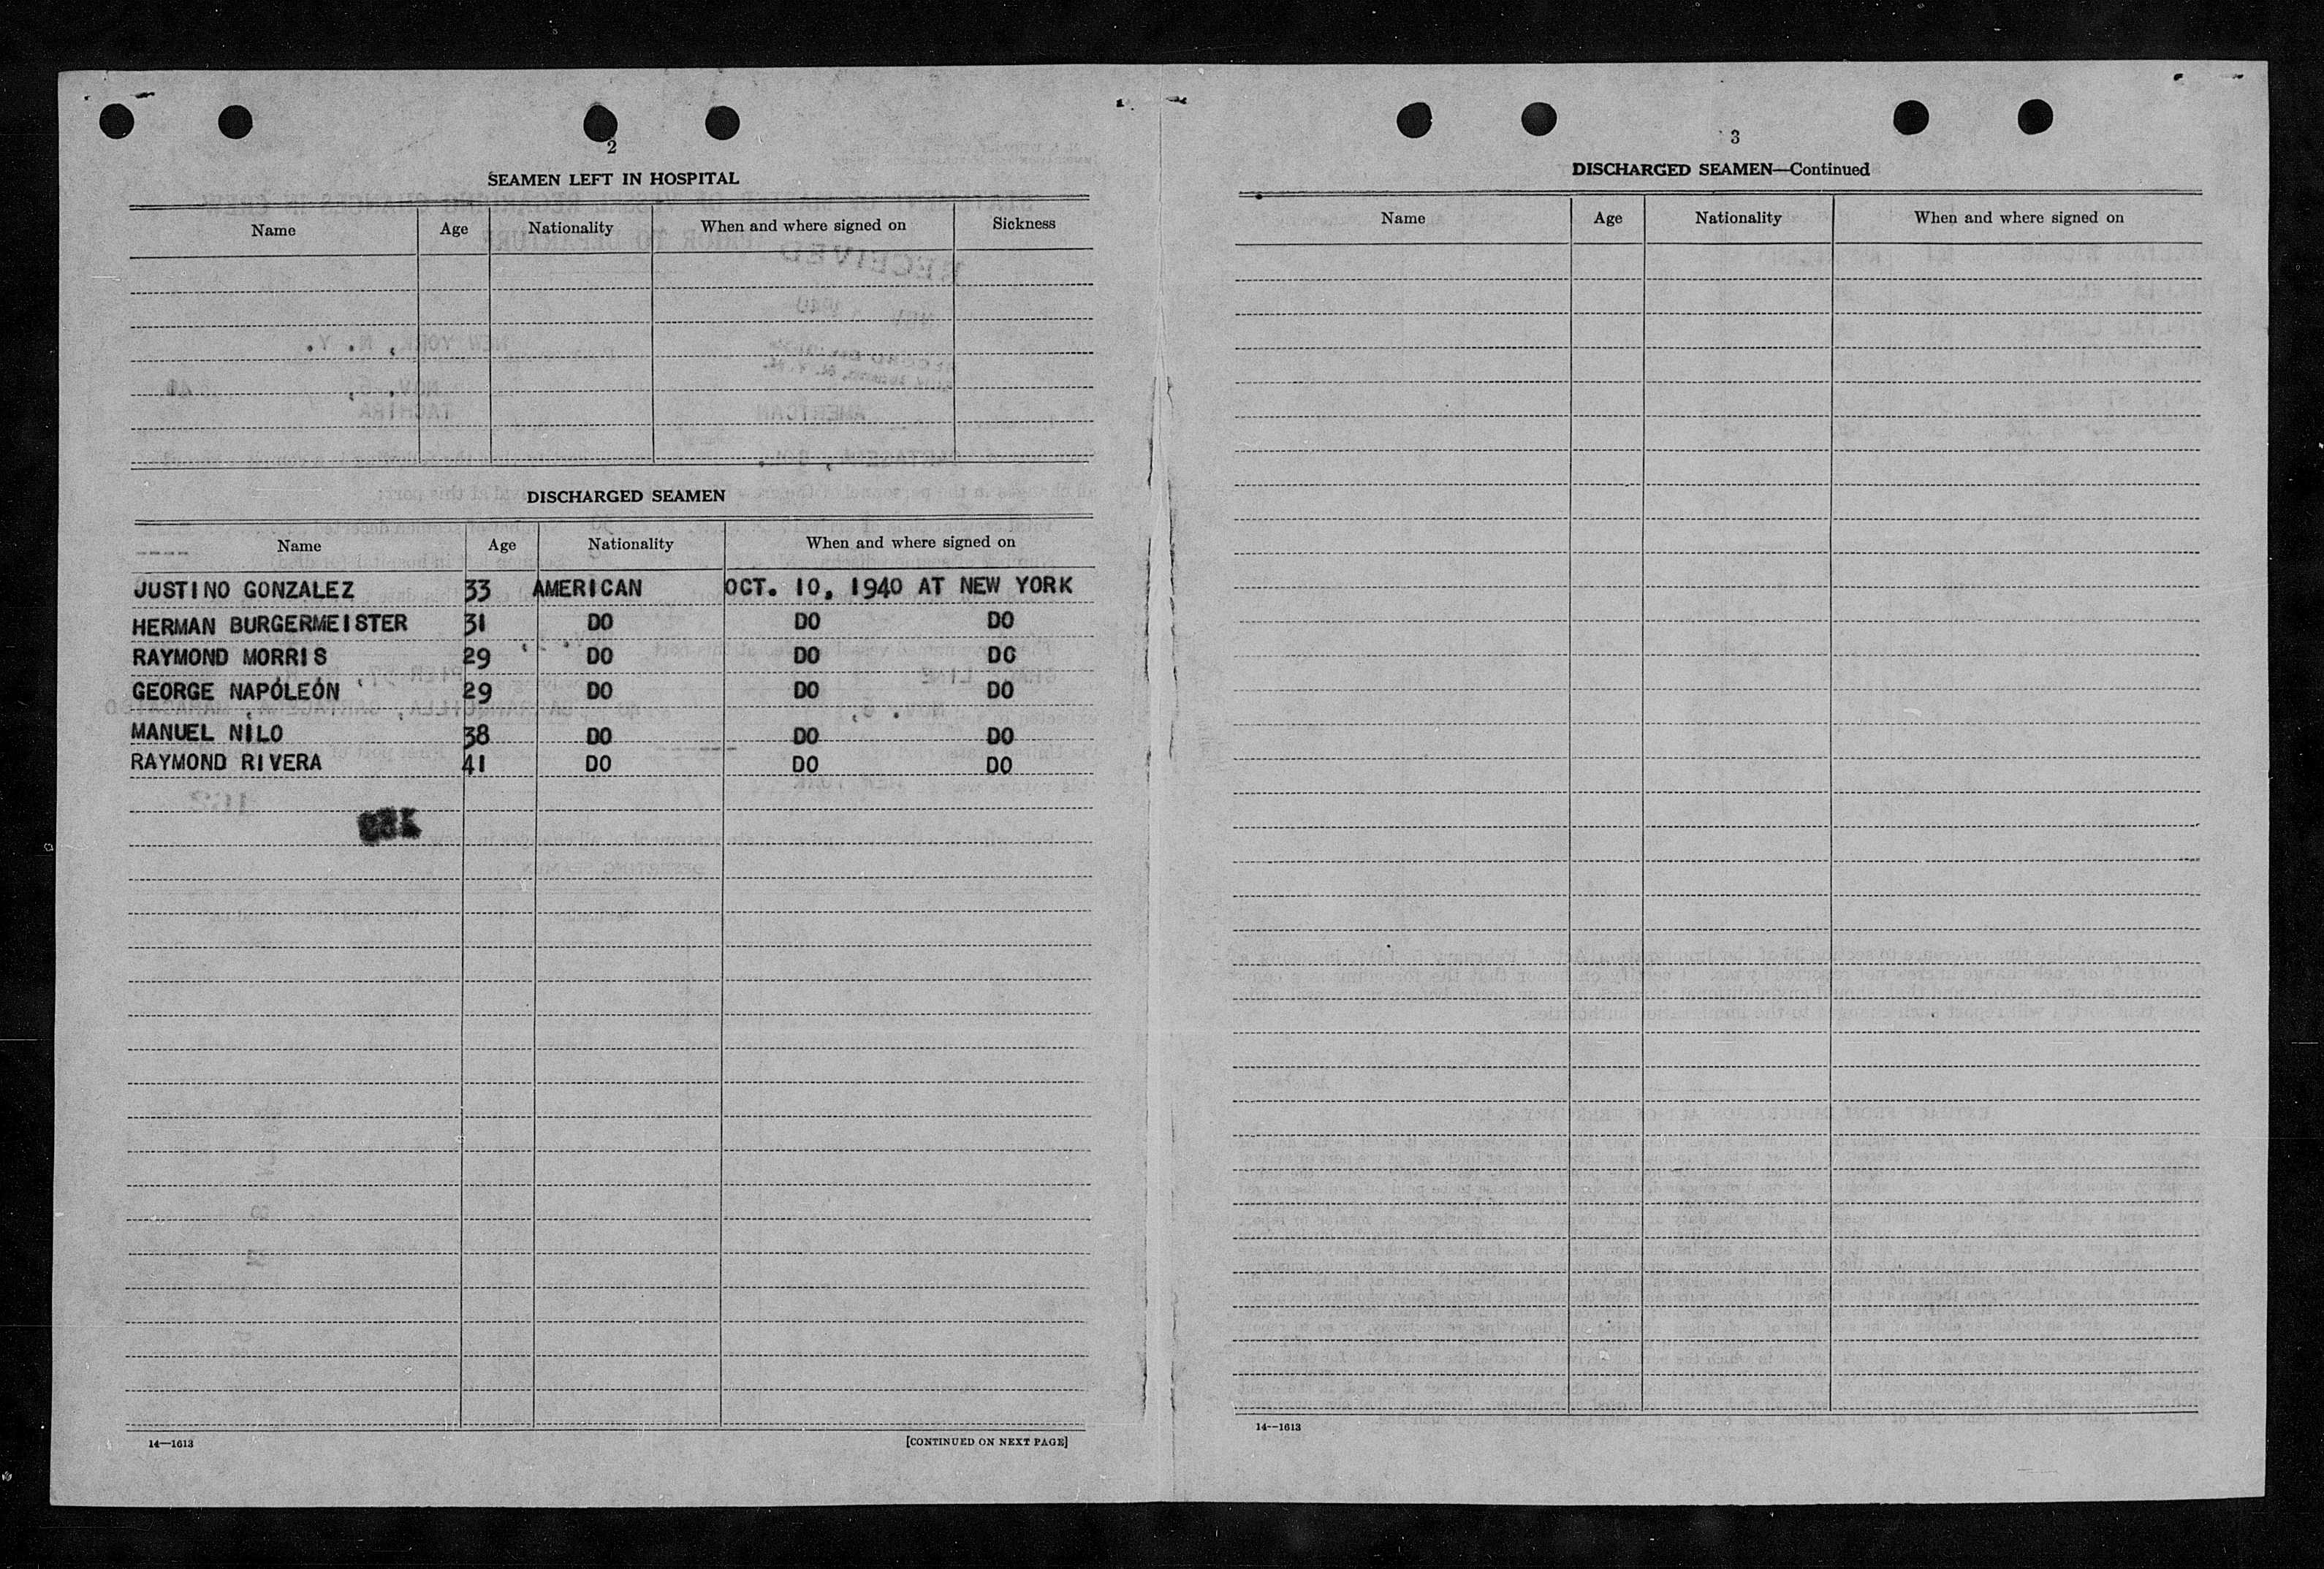 2
SEAMEN LEFT IN HOSPITAL
Name Age Nationality When and where signed on Sickness
DISCHARGED SEAMEN
Name Age Nationality When and where signed on
JUSTINO GONZALEZ 33 AMERICAN OCT. 10, 1940 AT NEW YORK
HERMAN BURGERMEISTER 31 DO DO DO
RAYMOND MORRIS 29 DO DO DO
GEORGE NAPOLEON 29 DO DO DO
MANUEL NILO 38 DO DO DO
RAYMOND RIVERA 41 DO DO DO
14—1613 [CONTINUED ON NEXT PAGE]
3
DISCHARGED SEAMEN—Continued
Name Age Nationality When and where signed on
14—1613